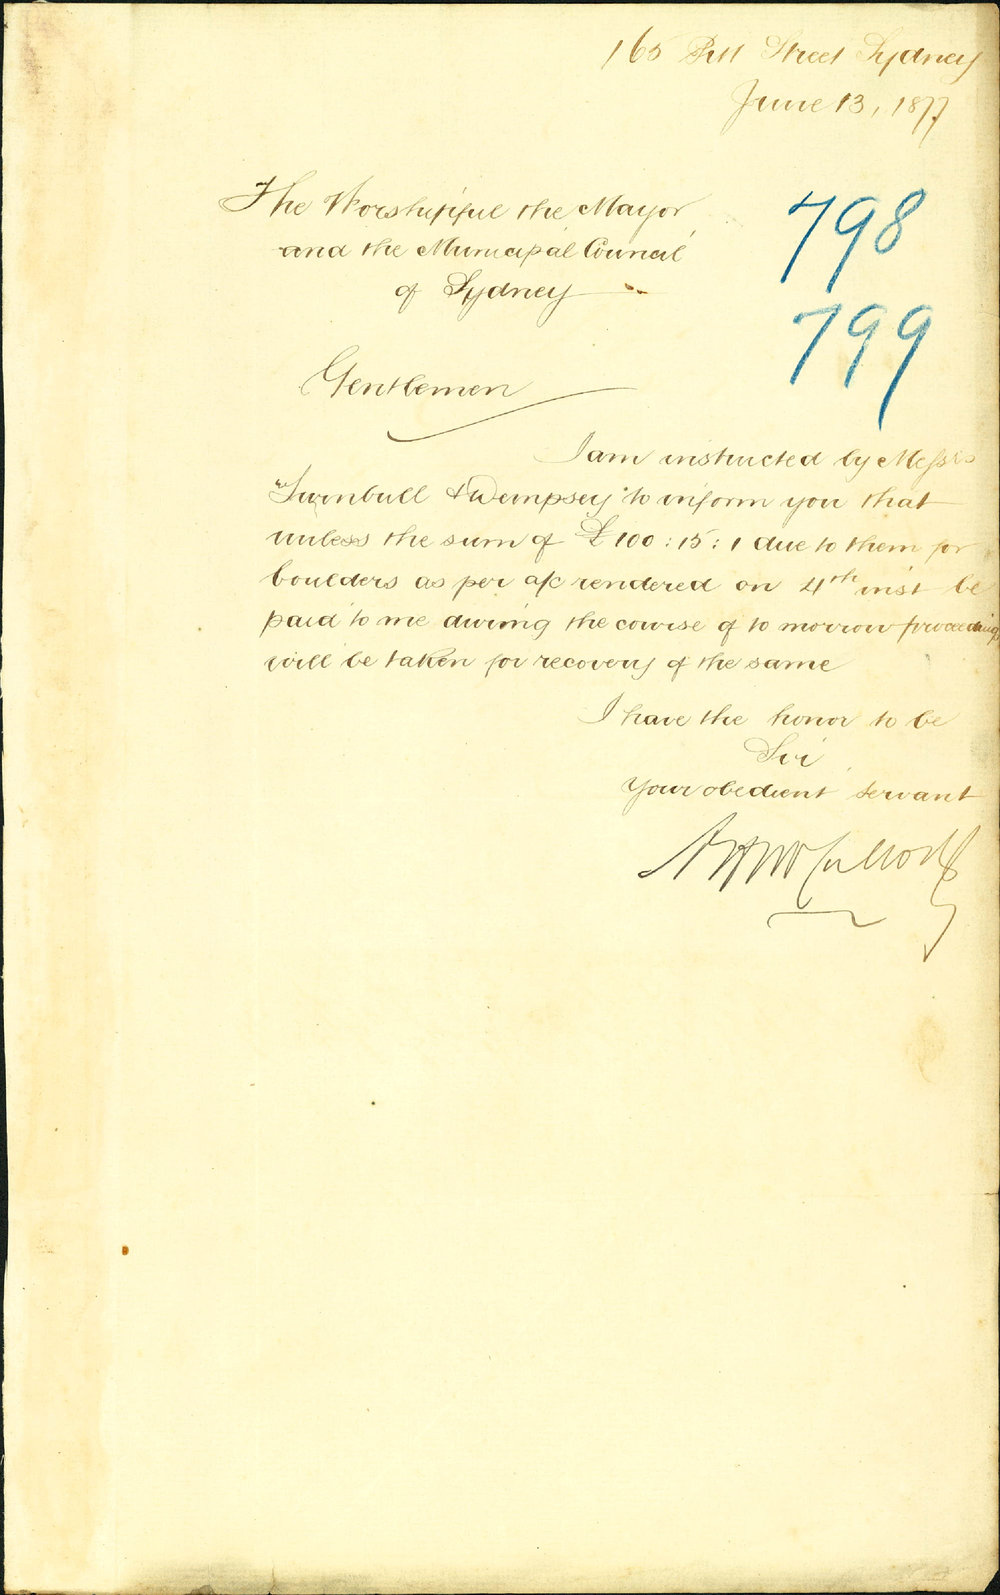 165 Pitt Street Sydney
June 13, 1877
The Worshipful the Mayor
and the Municipal Council
of Sydney
798
799
Gentlemen
I am instructed by Messrs
Turnbull & Dempsey to inform you that
unless the sum of £100:15:1 due to them for
boulders as per a/c rendered on 4th inst be
paid to me during the course of to morrow proceedings
will be taken for recovery of the same
I have the honor to be
Sir
Your obedient servant
A H McCulloch